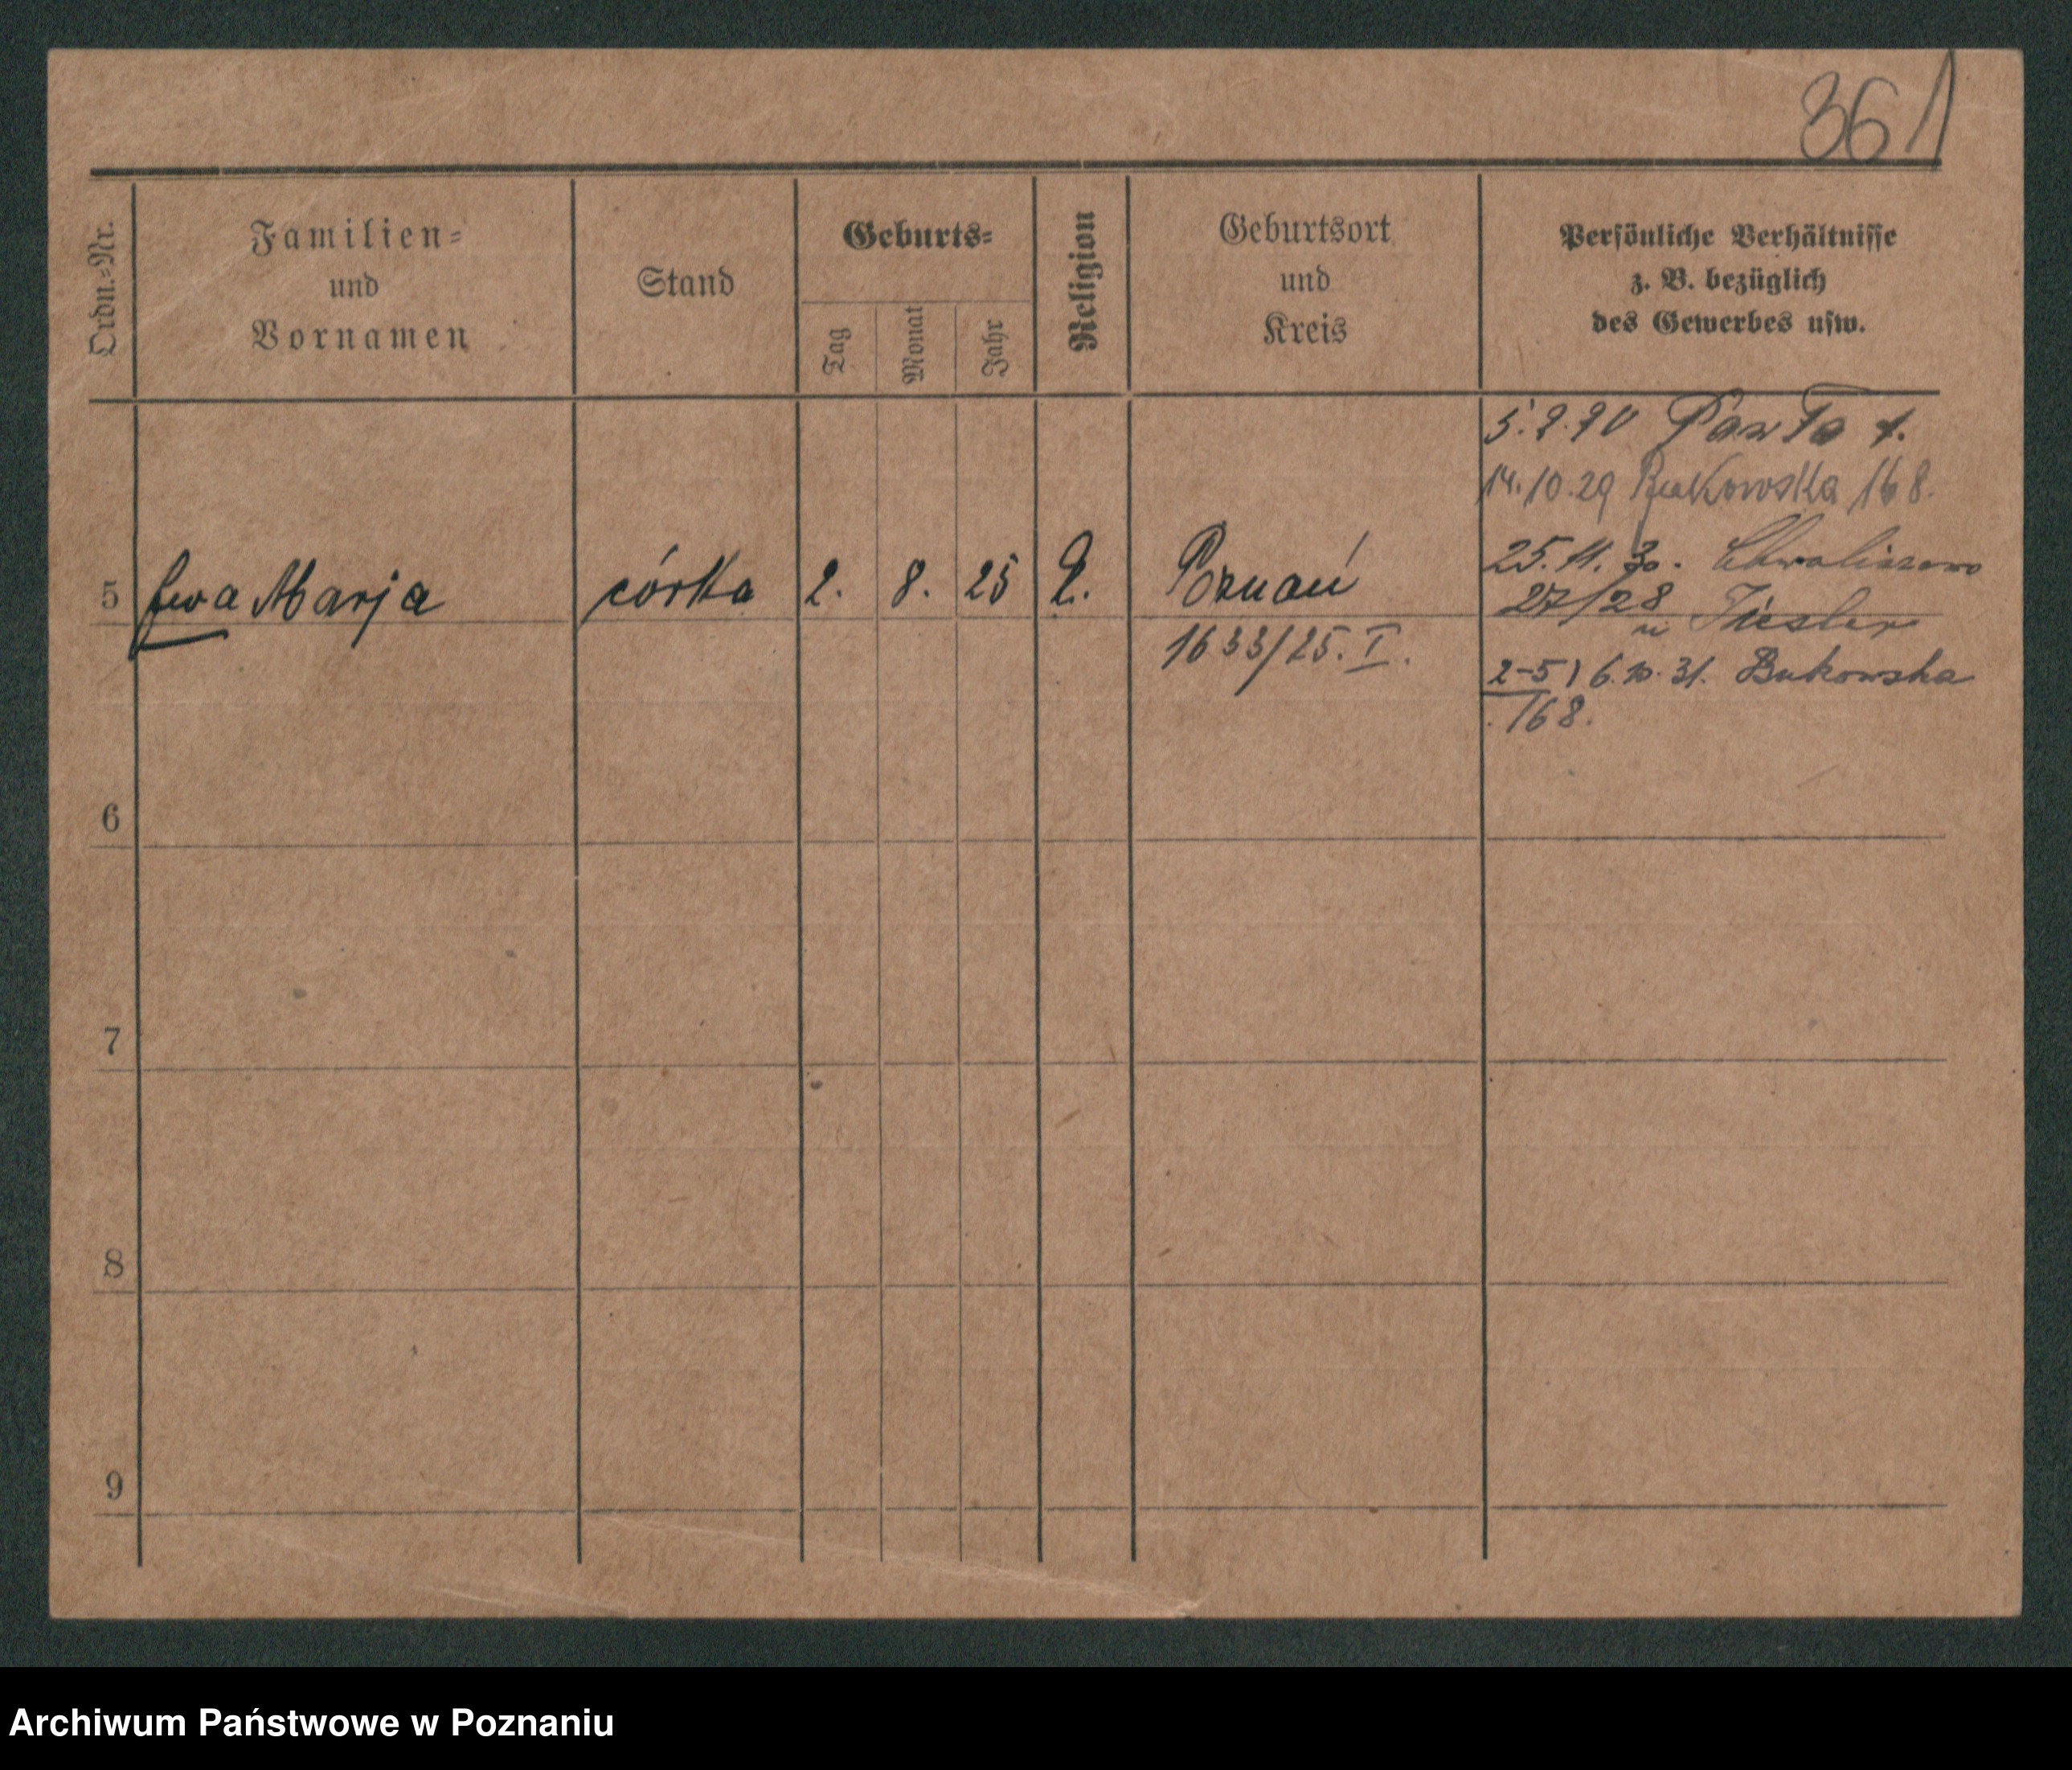 361
Ordn.-Nr.
Familien-
und
Vornamen
Stand
Geburts-
Tag
Monat
Jahr
Religion
Geburtsort
und
Kreis
Persönliche Verhältnisse
z. B. bezüglich
des Gewerbes usw.
14.10.29 Bukowska 168.
25.11.30. Chwaliszewo
5 Ewa Marja córka 2. 8. 25 Poznań
27/28
u Tiesler
1633/25. I.
2-5) 6.10.31. Bukowska
168.
6
7
8
9
Archiwum Państwowe w Poznaniu